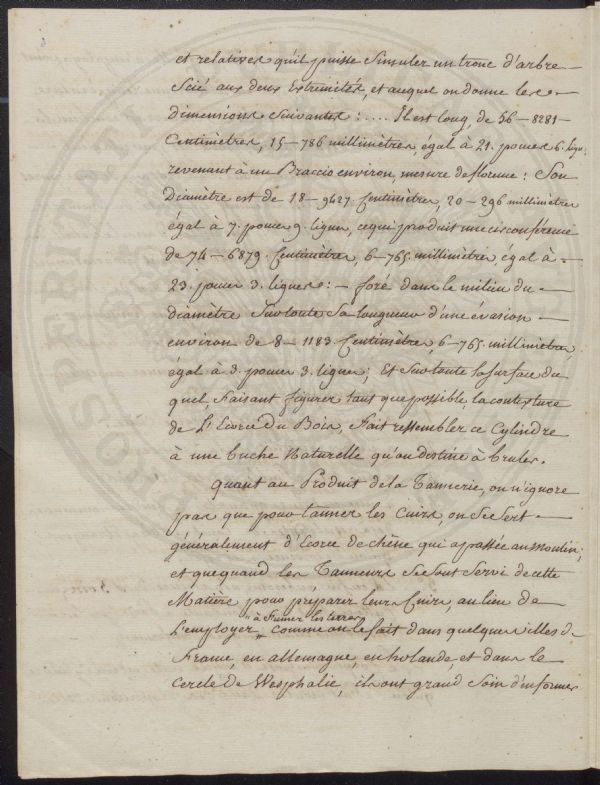 et relatives qu'il puisse simuler un tronc d'arbre —
Scié aux deux Extremités, et auquel on donne les —
dimensions suivantes : .... Il est long, de 56 — 8281 —
Centimètres, 15 — 786 millimètres, égal à 21. pouces 6. lign.
revenant à un Braccio environ, mesure de florence : Son
Diamètre est de 18 — 9427. Centimètres, 20 — 296 millimètres
égal à 7. pouces 9. lignes, ce qui produit une cisconférence
de 74 — 6879. Centimètres, 6 — 765. millimètres égal à —
23. pouces 3. lignes : — foré dans le milieu du —
diamètre Sur toute Sa longueur d'une évasion —
environ de 8 — 1183 Centimètres, 6 — 765. millimètres,
égal à 3. pouces 3. lignes ; Et Sur toute la surface du
quel, faisant figurer tant que possible, la contexture
de L'Ecorce du Bois, fait ressembler ce Cylindre
à une buche Naturelle qu'on destine à bruler.
Quant au Produit de la Tannerie, on n'ignore
pas que pour tanner les Cuirs, on Se Sert —
généralement d'Ecorce de chêne qui a passée au moulin ;
et que quand les Tanneurs Se Sont Servi de cette
Matière pour préparer leurs Cuirs, au lieu de
"à fumer les terres
L'employer „ comme on le fait dans quelques villes de
France, en allemagne, en holande, et dans le
Cercle de Wesphalie, ils ont grand Soin d'en former